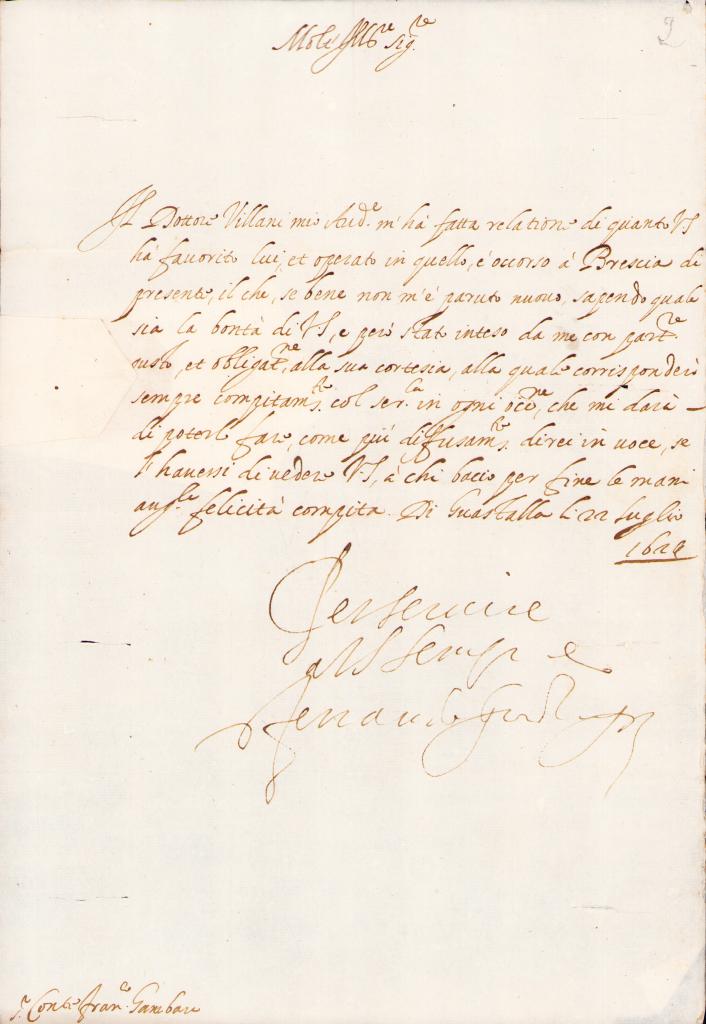 9
Molt' Ill.re Sig.re
Il Dottore Villani mio Aud.e m'hà fatta relatione di quanto VS
hà favorito lui, et operato in quello, è occorso à Brescia di
presente, il che, se bene non m'è paruto nuovo, sapendo quale
sia la bontà di VS, e però stat' inteso da me con part.re
gusto, et obligat.ne, alla sua cortesia, alla quale corrisponderò
sempre compitam.te col ser.la in ogni occ.ne, che mi darà
di poterl fare, come più diffusam.te direi in voce, se
havessi di vedere V.S, à chi bacio per fine le mani
aug.le felicità compita. Di Guastalla li 22 luglio
162
Per servire
a VS sempre
Ferrante
S.r Conte Fran.co Gambara